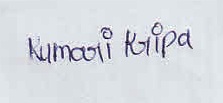 Kumari Kripa